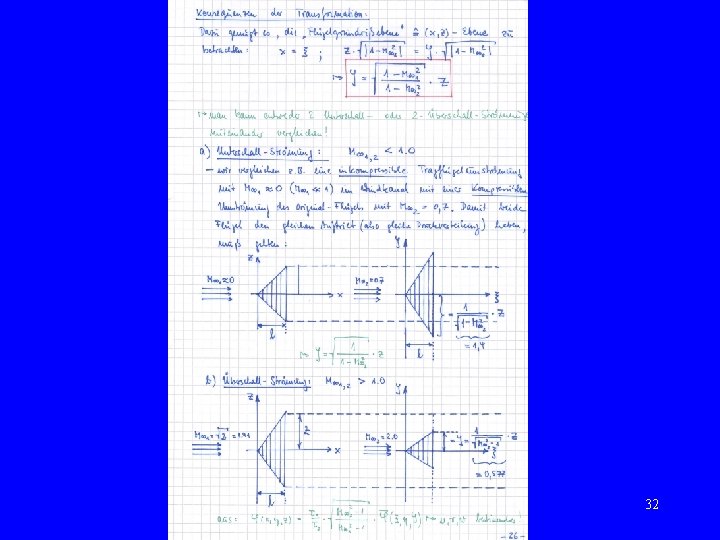 Konsequenzen der Transformation:
Dazu genügt es, die „Flügelgrundrißebene" ≙ (x,z) - Ebene zu
betrachten: x = ξ ; z·√|1-M∞₁²| = y·√|1-M∞₂²|
↦ y = √((1-M∞₁²)/(1-M∞₂²)) · z
↦ man kann entweder 2 Unterschall- oder 2-Überschall-Strömungen
miteinander vergleichen!
a) Unterschall-Strömung: M∞₁,₂ < 1.0
- wir vergleichen z.B. eine inkompressible Tragflügelumströmung
mit M∞₁ ≈ 0 (M∞₁ ≪ 1) im Windkanal mit einer kompressiblen
Umströmung des Original-Flügels mit M∞₂ = 0,7. Damit beide
Flügel den gleichen Auftrieb (also gleiche Druckverteilung) haben,
muß gelten:
z y
M∞₁≈0 x M∞₂=0.7 ξ
= 1/√(1-M∞₂²) · z
l l = 1,4
↦ y = √(1/(1-M∞₂²)) · z
b) Überschall-Strömung: M∞₁,₂ > 1.0
z y
M∞₁=√2 = 1.41 z x M∞₂=2.0 = y = 1/√(M∞₂²-1) · z
ξ
= 0,577
l l
aus: φ(x,y,z) = · √((M∞₂²-1)/(M∞₁²-1)) · φ(ξ,η,y) ↦ u,v,w
- 26 -
32